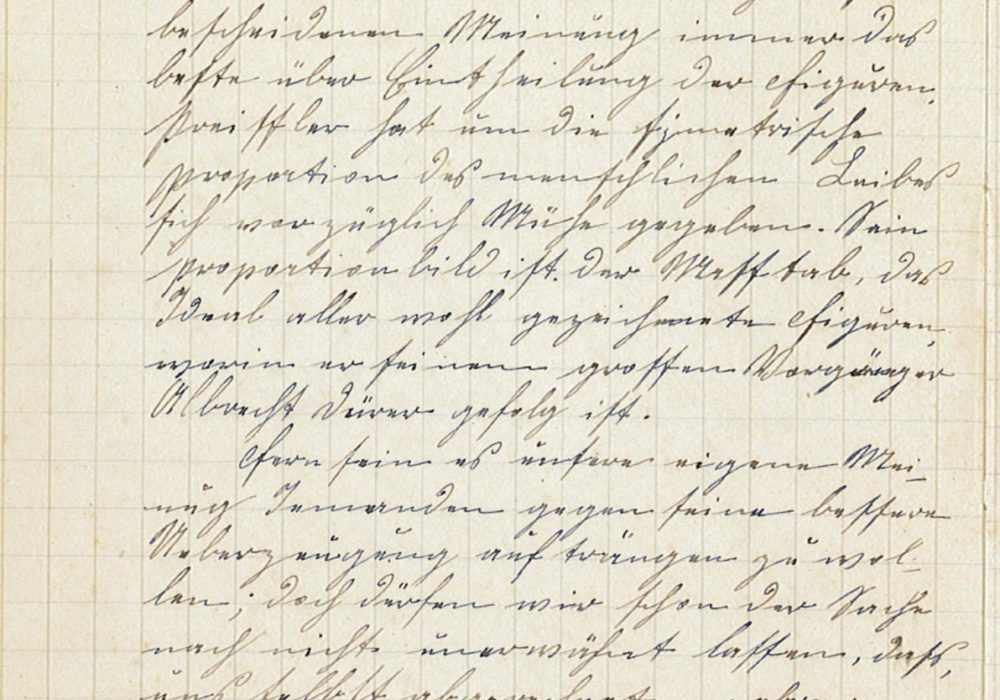 bescheidenen Meinung immer das
beste über Eintheilung der Figuren.
Preissler hat um die symetrische
proportion des menschlichen Leibes
sich vorzüglich Mühe gegeben. Sein
proportionbild ist der Messstab, das
Ideal aller wohl gezeichnete Figuren,
worin er seinem grossen Vorgänger
Albrecht Dürer gefolg ist.
Fern sein es unsere eigene Mei-
nug Jemanden gegen seine bessere
Ueberzeugung auf trängen zu wol-
len; doch dürfen wir schon der Sache
nach nicht unerwähnt lassen, dass,
uns selbst abgerechnet